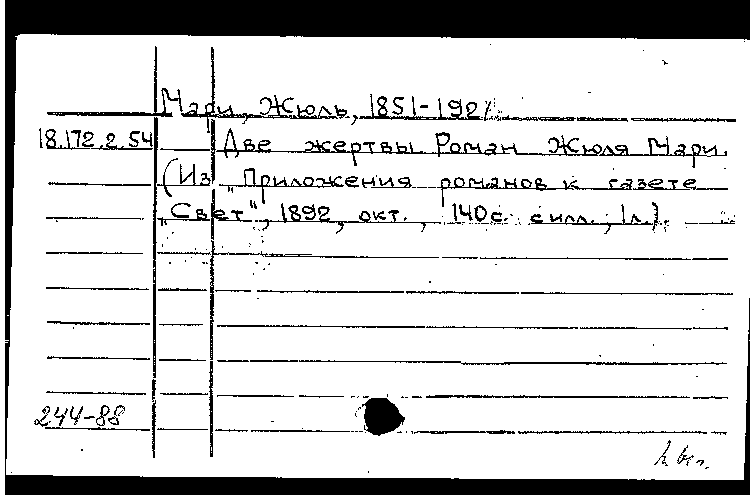 Мари, Жюль, 1851-192
18.172.2.54 Две жертвы. Роман Жюля Мари.
(Из „Приложения романов к газете
„Свет", 1892, окт., 140с. с илл., 1л.).
244-88